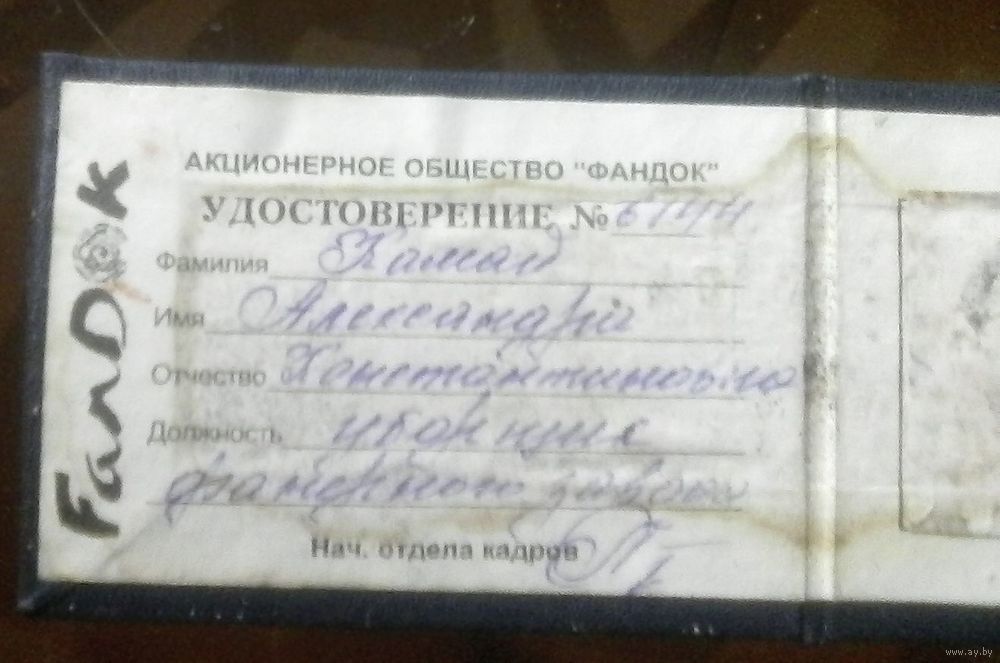 FanDOK
АКЦИОНЕРНОЕ ОБЩЕСТВО "ФАНДОК"
УДОСТОВЕРЕНИЕ №
Фамилия
Имя Александр
Отчество Константинович
Должность
фанерного завода
Нач. отдела кадров
www.ay.by